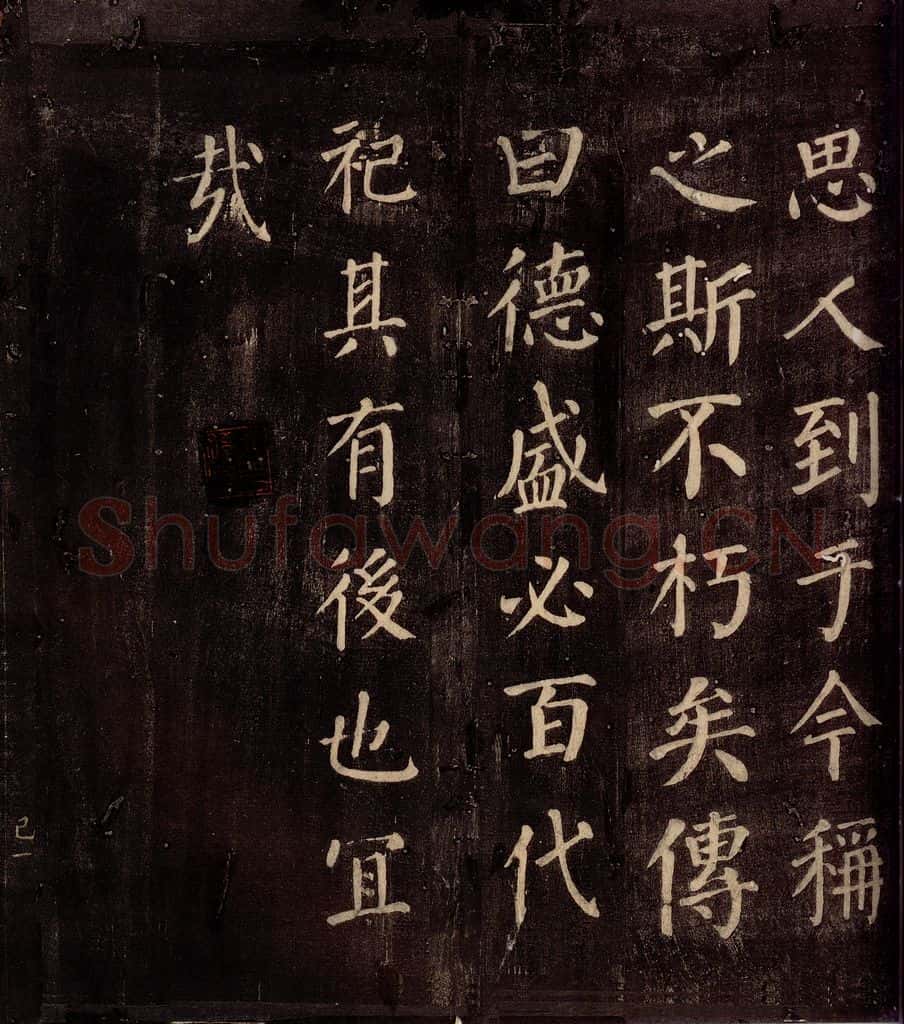 思人到于今稱
之斯不朽矣傳
曰德盛必百代
祀其有後也冝
哉
己一
Shufawang.CN